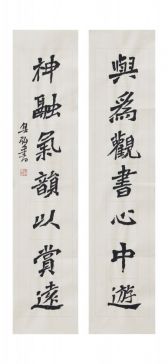 與爲觀書心中遊
神融氣韻以賞遠